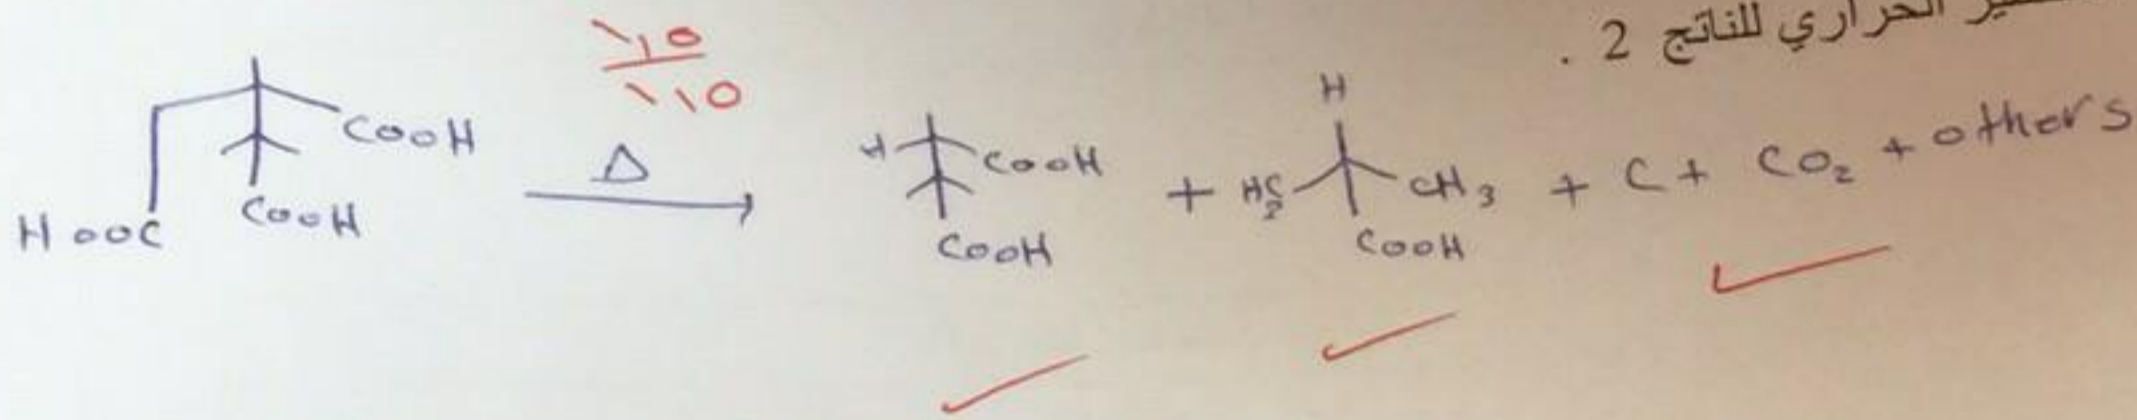 الحراري للناتج 2 .
١,٥
١١٥
HOOC COOH COOH Δ H COOH COOH + H H₂C CH₃ COOH + C + CO₂ + others